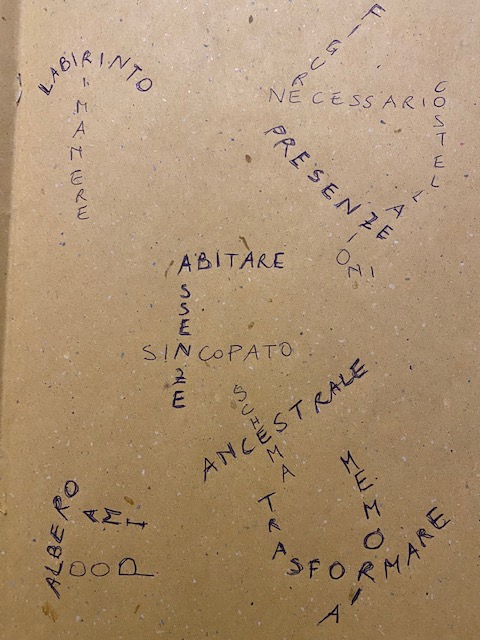 LABIRINTO
RIMANERE
FIGURE
NECESSARIO
COSTELLAZIONI
PRESENZE
ABITARE
ASSENZE
SINCOPATO
SCHEMA
ANCESTRALE
MEMORIA
TRASFORMARE
ALBERO
RAMI